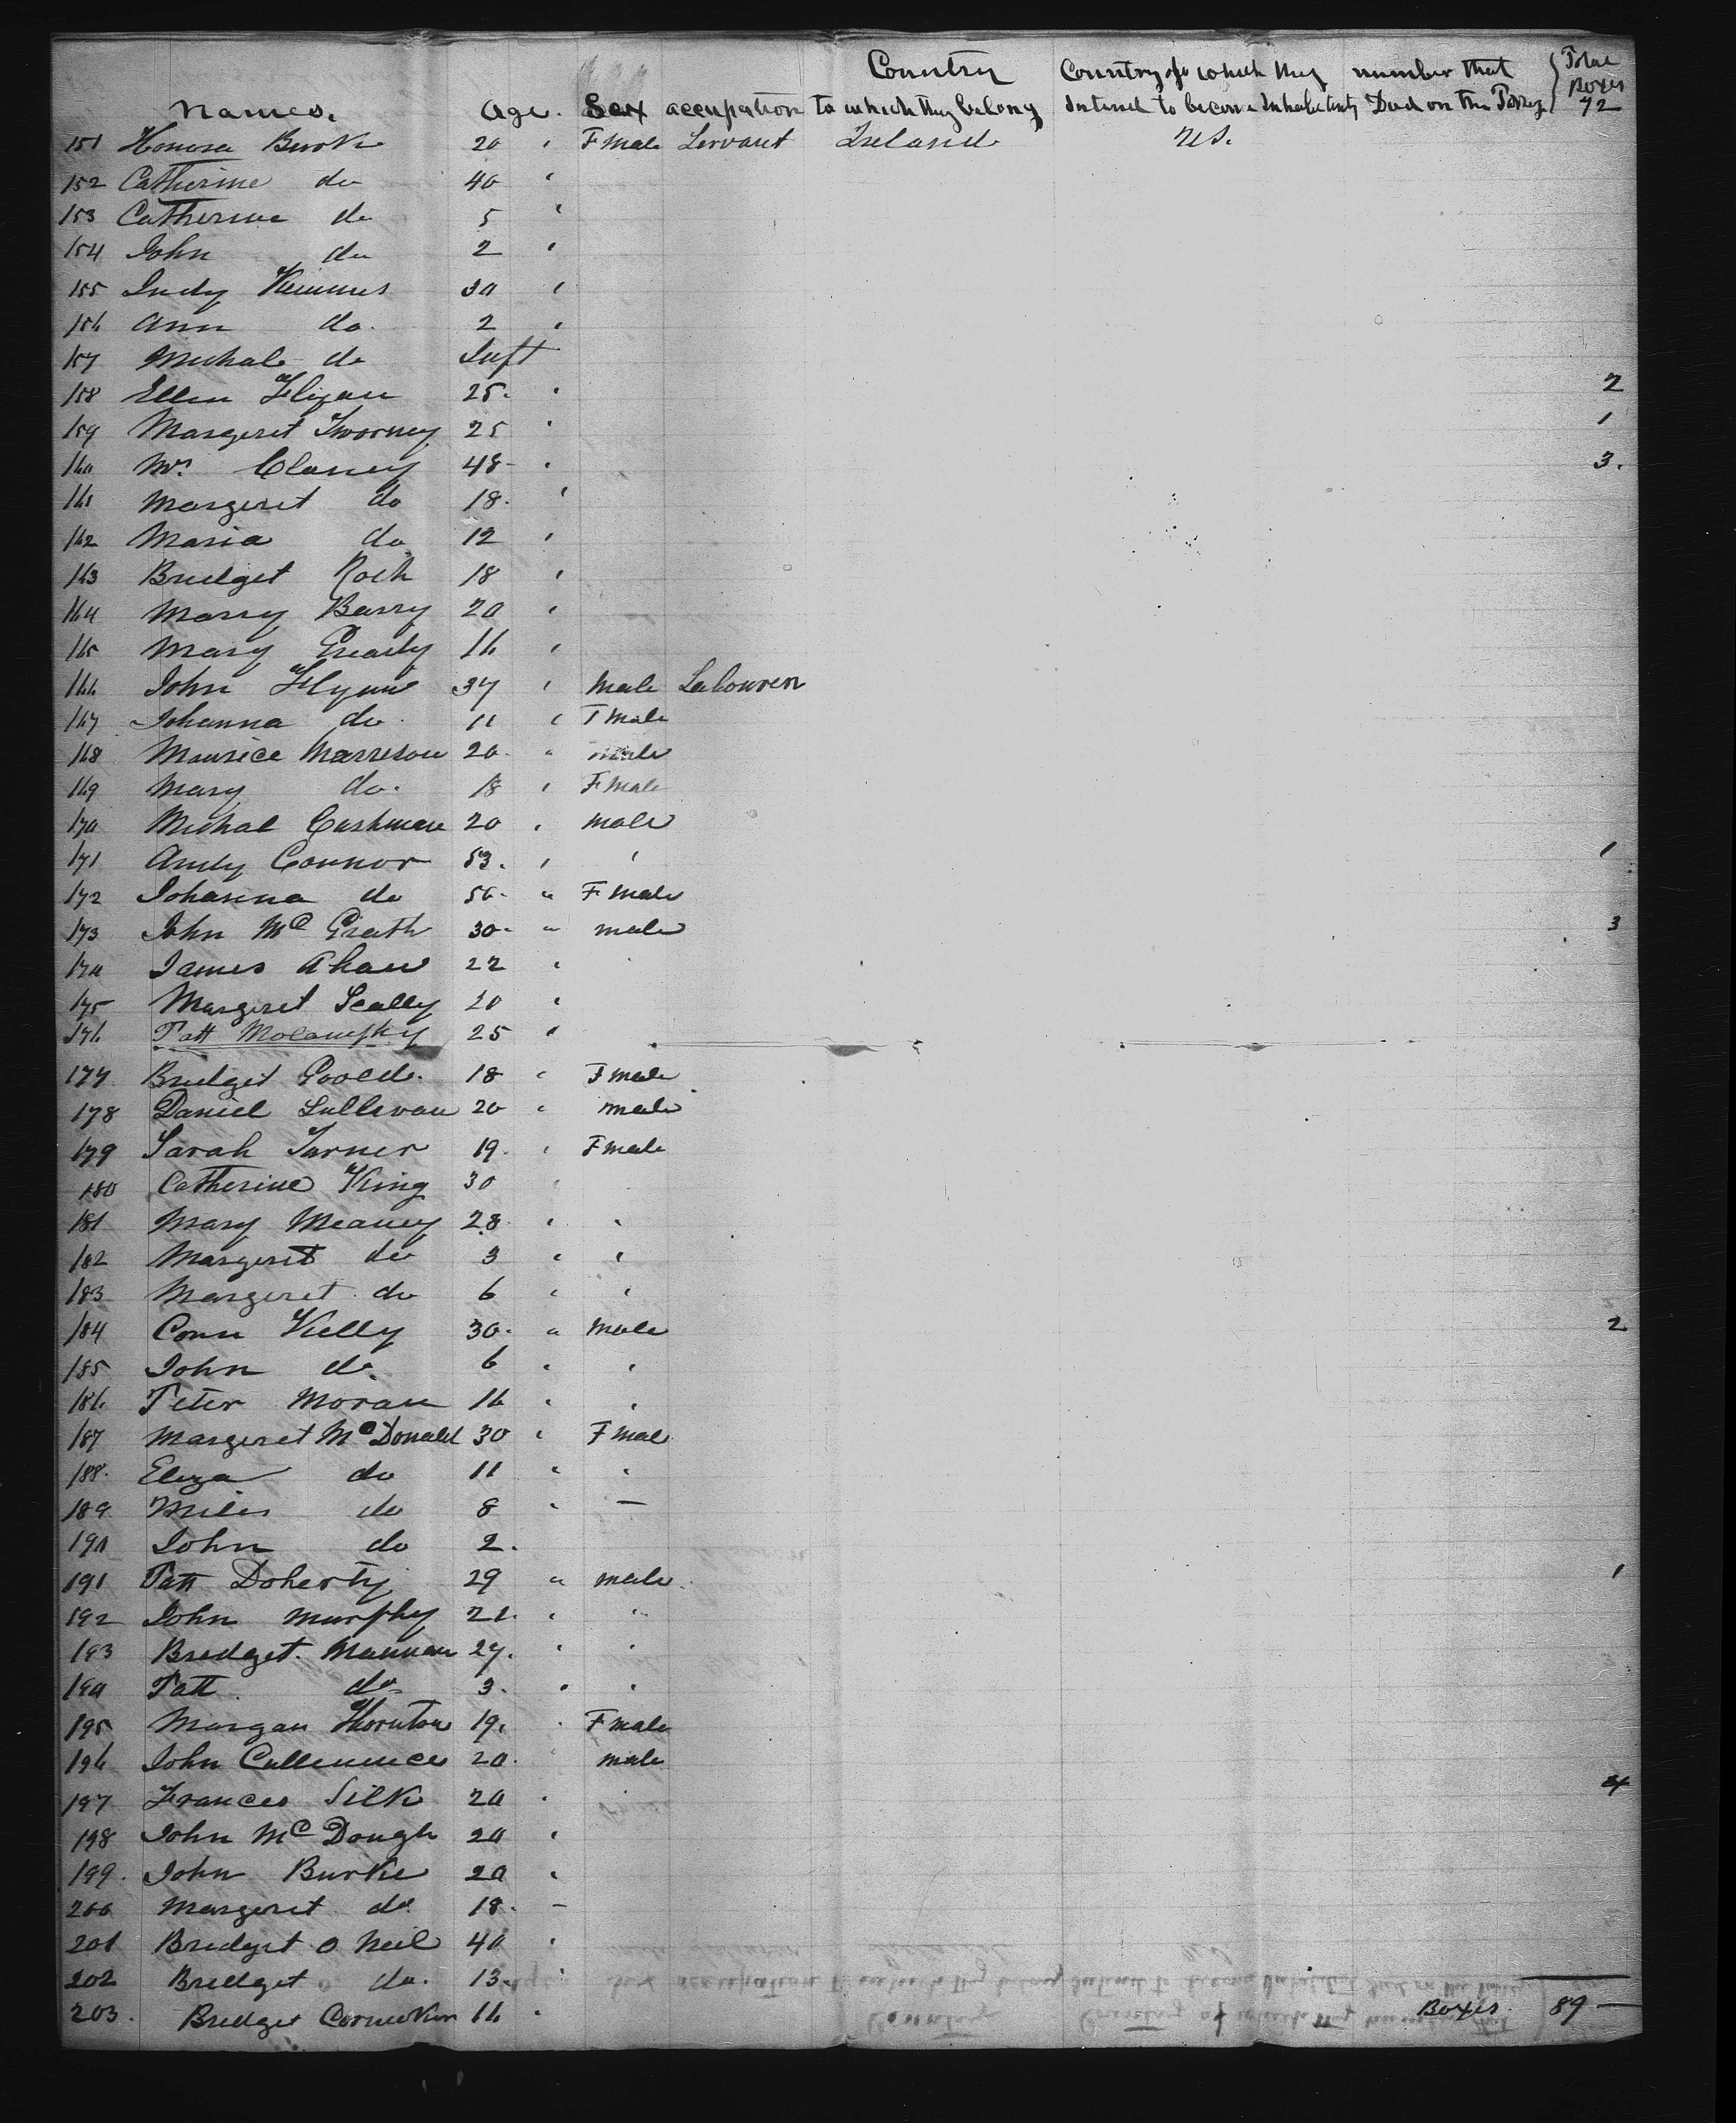 Country Country of which they number that Total Boxes
Names. Age. Sex accupation to which they belong intend to become Inhabitents Died on the Passage 72
151 Honora Burk 20 " F male Servant Ireland U S.
152 Catherine do 40 "
153 Catherine do 5 "
154 John do 2 "
155 Judy 30 "
156 Ann do. 2 "
157 Michal do Inft
158 Ellen 25. " 2
159 Margeret Twomey 25 " 1
160 Mrs Clancy 48 - " 3.
161 Margeret do 18. "
162 Maria do 12 "
163 Bridget Roch 18 "
164 Marry Barry 20 "
165 Mary 16 "
166 John Flynn 37 " Male Labourer
167 Johanna do. 11 " F male
168 Maurice Marreson 20. " male
169 Mary do. 18 " F male
170 Michal Cashman 20 " male
171 Andy Connor 53. " " 1
172 Johanna do 50 - " F male
173 John Mc Grath 30 - " male 3
174 James Ahau 22 "
175 Margeret Scally 20 "
176 Patt 25 "
177 Bridget Goold. 18 " F male
178 Daniel Sullivan 20 " male
179 Sarah Turner 19. " F male
180 Catherine King 30 "
181 Mary Meaney 28. " "
182 Margeret do 3 " "
183 Margeret do 6 " "
184 Conn Kelly 30. " Male 2
185 John do. 6 " "
186 Peter Moran 16 " "
187 Margeret Mc Donald 30 " F mal
188. Eliza do 11 " "
189 Miles do 8 " —
190 John do 2.
191 Patt Doherty 29 " male. 1
192 John Murphy 21. " "
193 Bredget. Mannan 27. " "
194 Patt. do 3. " "
195 Morgan Thornton 19. " F male
196 John 20. " male
197 Frances Silk 20 " 4
198 John Mc Dough 20 "
199. John Burke 20 "
200 Margeret do 18. -
201 Bredget O Neil 40 "
202 Bredget do. 13. "
203. Bredget 16 " Boxes. 89 —